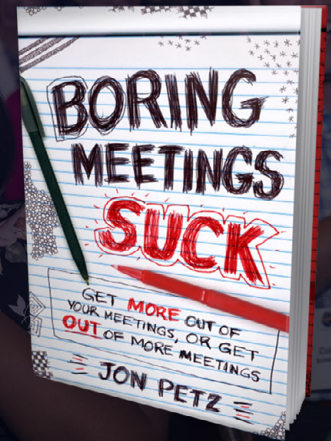 BORING
MEETINGS
SUCK
GET MORE OUT OF
YOUR MEETINGS, OR GET
OUT OF MORE MEETINGS
JON PETZ